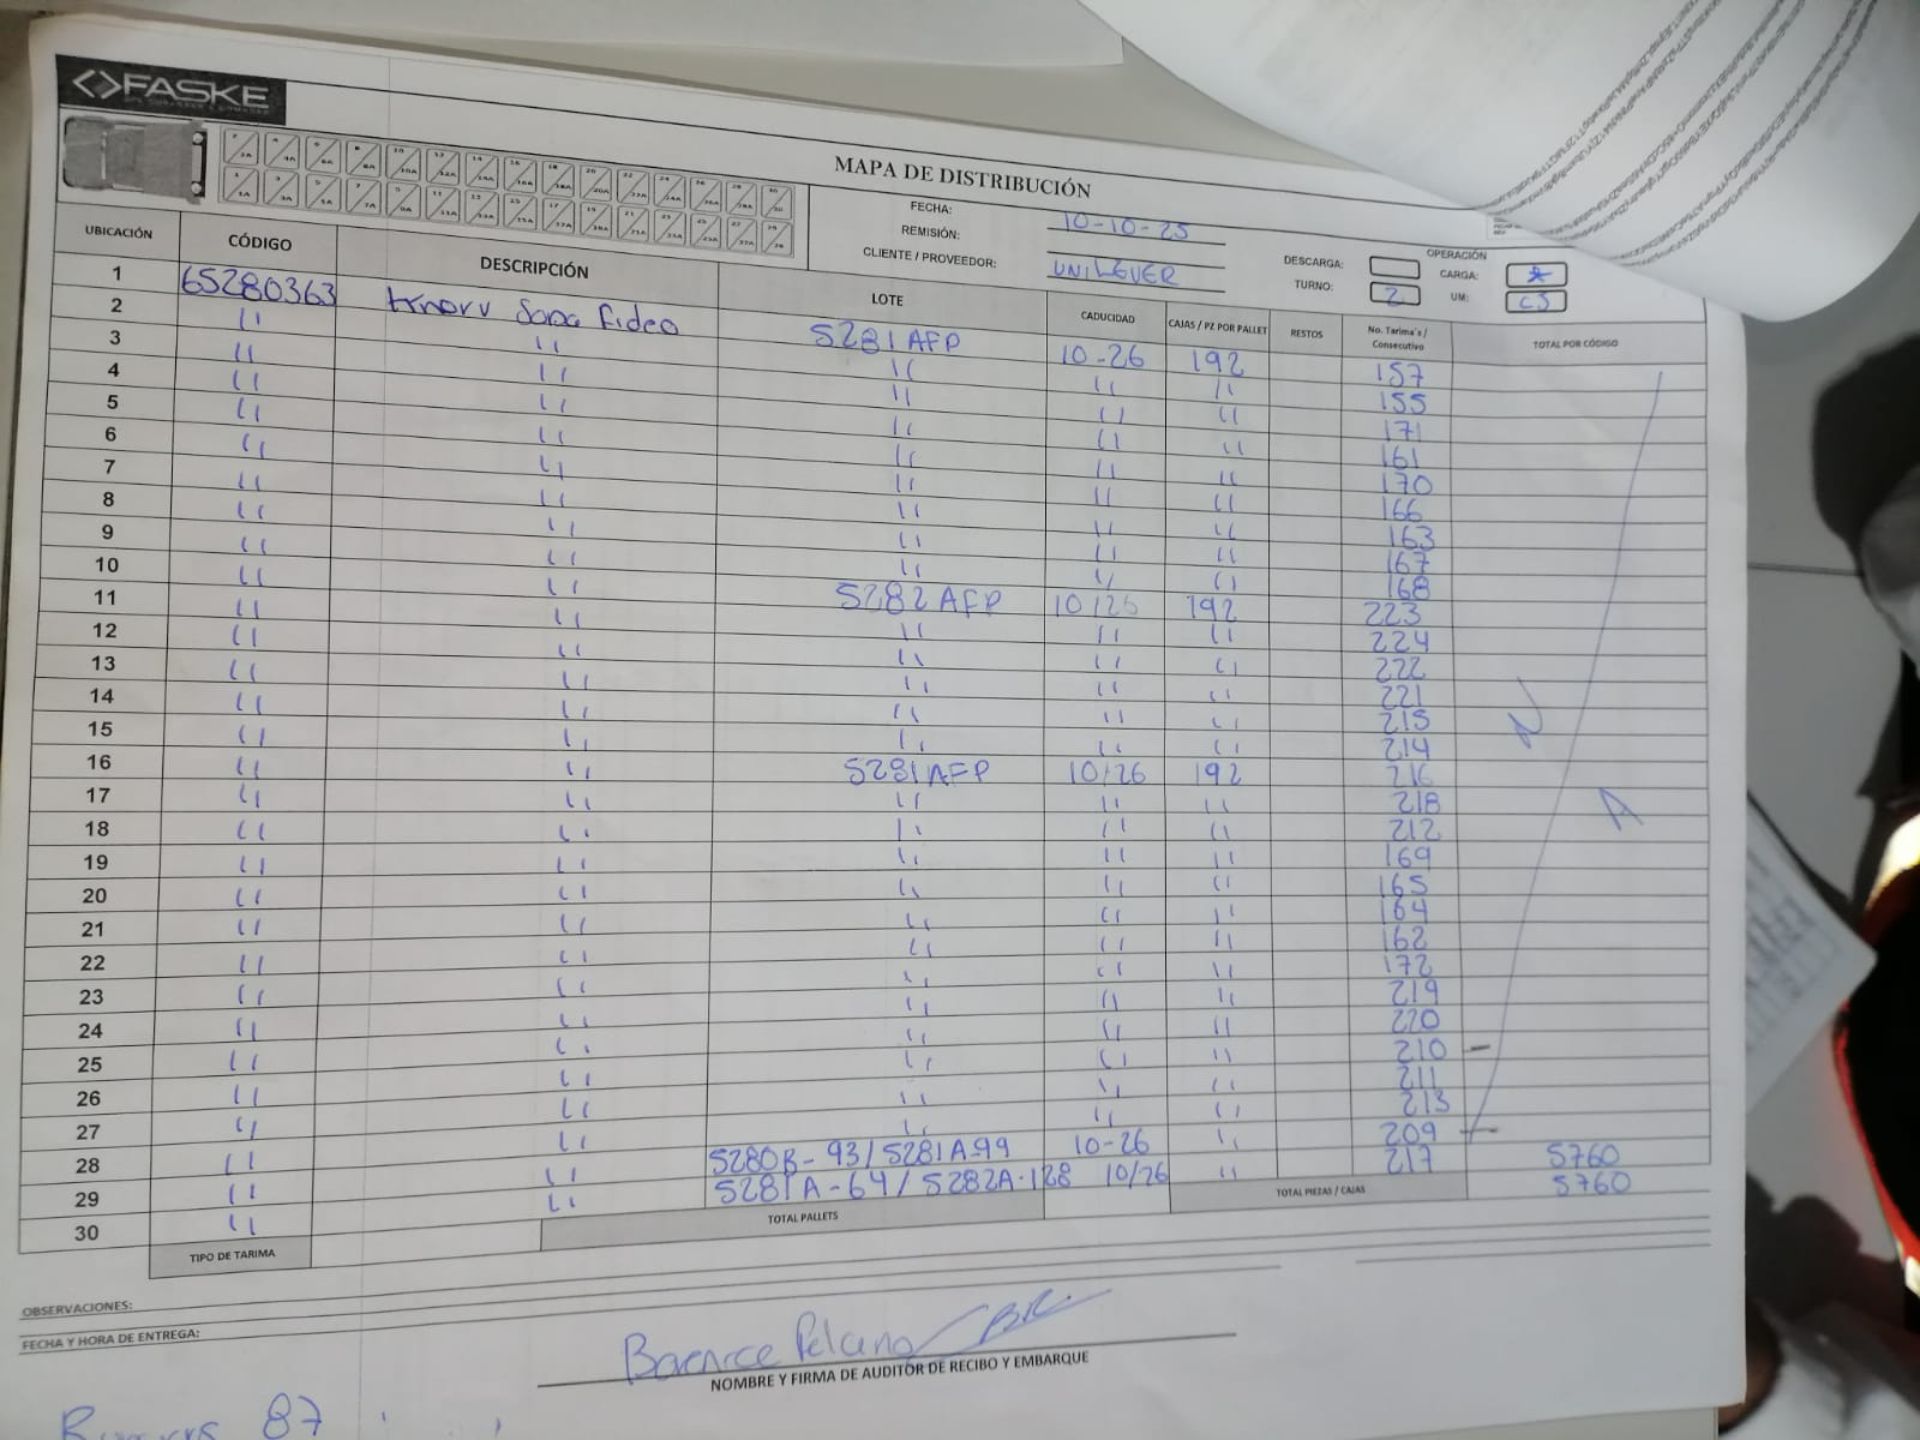 FASKE
MAPA DE DISTRIBUCIÓN
FECHA: 10-10-25
REMISIÓN:
CLIENTE / PROVEEDOR: UNILEVER
DESCARGA:
OPERACIÓN
CARGA:
TURNO: 2
UM: CJ
UBICACIÓN CÓDIGO DESCRIPCIÓN LOTE CADUCIDAD CAJAS / PZ POR PALLET RESTOS No. Tarima's / Consecutivo TOTAL POR CÓDIGO
1 65280363 Knorr Sopa Fideo 5281AFP 10-26 192 157
2 " " " " " 155
3 " " " " " 171
4 " " " " " 161
5 " " " " " 170
6 " " " " " 166
7 " " " " " 163
8 " " " " " 167
9 " " " " " 168
10 " " 5282AFP 10/26 192 223
11 " " " " " 224
12 " " " " " 222
13 " " " " " 221
14 " " " " " 215
15 " " " " " 214
16 " " 5281AFP 10/26 192 216
17 " " " " " 218
18 " " " " " 212
19 " " " " " 169
20 " " " " " 165
21 " " " " " 164
22 " " " " " 162
23 " " " " " 172
24 " " " " " 219
25 " " " " " 220
26 " " " " " 210
27 " " " " " 211
28 " " " " " 213
29 " " 5280B-93/5281A-99 10-26 " 209
30 " " 5281A-64/5282A-128 10/26 " 217 5760
TIPO DE TARIMA TOTAL PALLETS TOTAL PIEZAS / CAJAS 5760
N
A
OBSERVACIONES:
FECHA Y HORA DE ENTREGA:
NOMBRE Y FIRMA DE AUDITOR DE RECIBO Y EMBARQUE
87